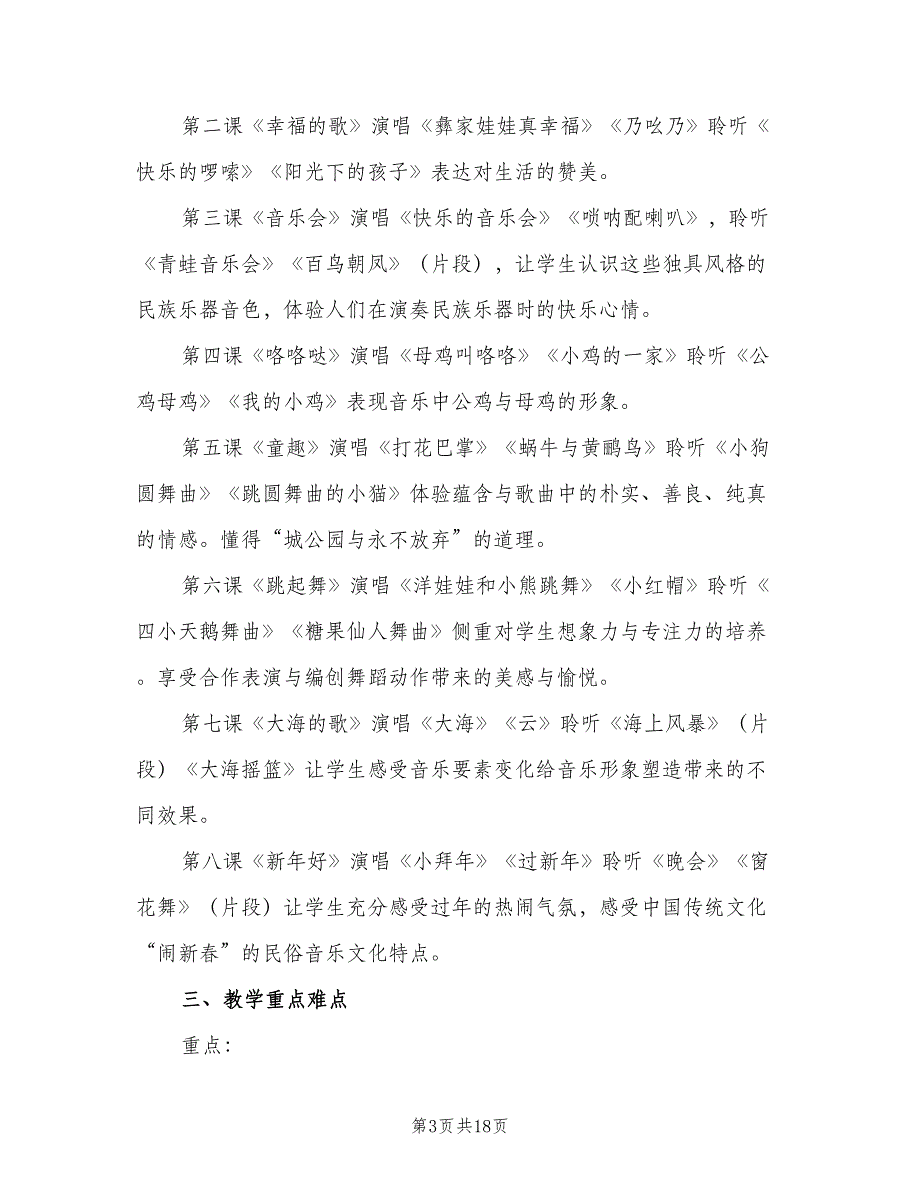 第二课《幸福的歌》演唱《彝家娃娃真幸福》《乃吆乃》聆听《
快乐的啰嗦》《阳光下的孩子》表达对生活的赞美。
第三课《音乐会》演唱《快乐的音乐会》《唢呐配喇叭》，聆听
《青蛙音乐会》《百鸟朝凤》（片段），让学生认识这些独具风格的
民族乐器音色，体验人们在演奏民族乐器时的快乐心情。
第四课《咯咯哒》演唱《母鸡叫咯咯》《小鸡的一家》聆听《公
鸡母鸡》《我的小鸡》表现音乐中公鸡与母鸡的形象。
第五课《童趣》演唱《打花巴掌》《蜗牛与黄鹂鸟》聆听《小狗
圆舞曲》《跳圆舞曲的小猫》体验蕴含与歌曲中的朴实、善良、纯真
的情感。懂得“城公园与永不放弃”的道理。
第六课《跳起舞》演唱《洋娃娃和小熊跳舞》《小红帽》聆听《
四小天鹅舞曲》《糖果仙人舞曲》侧重对学生想象力与专注力的培养
。享受合作表演与编创舞蹈动作带来的美感与愉悦。
第七课《大海的歌》演唱《大海》《云》聆听《海上风暴》（片
段）《大海摇篮》让学生感受音乐要素变化给音乐形象塑造带来的不
同效果。
第八课《新年好》演唱《小拜年》《过新年》聆听《晚会》《窗
花舞》（片段）让学生充分感受过年的热闹气氛，感受中国传统文化
“闹新春”的民俗音乐文化特点。
三、教学重点难点
重点：
第3页共18页